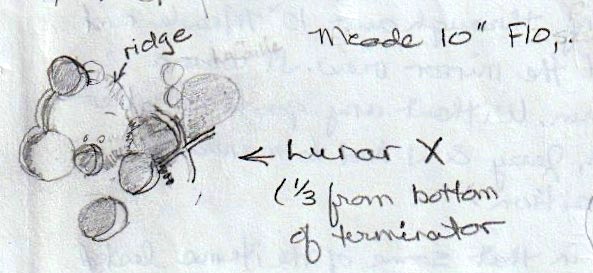 ridge
Meade 10" F10,
← Lunar X
(1/3 from bottom
of terminator